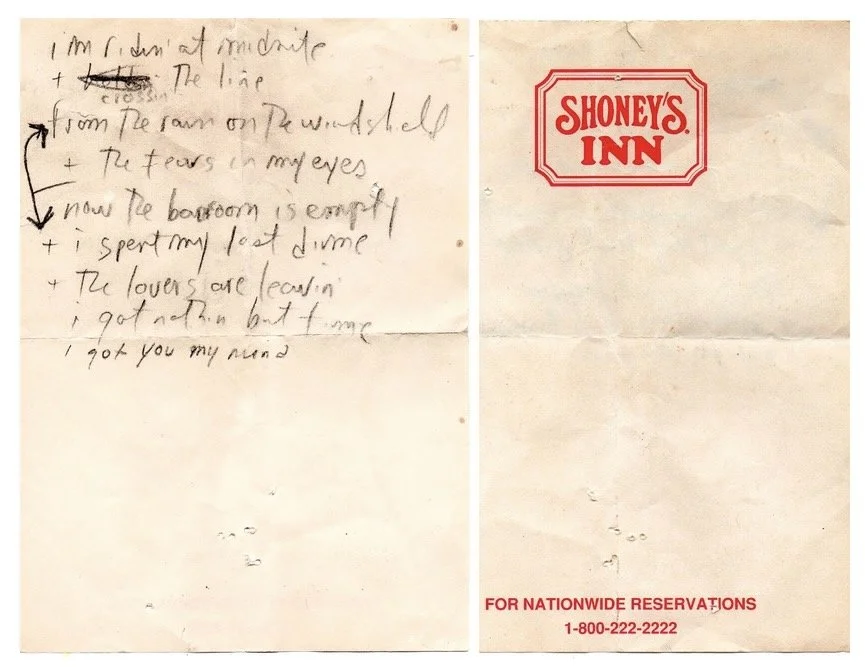 i'm ridin' at midnite
+ the line
crossin
from the rain on the windshield
+ the tears in my eyes
now the barroom is empty
+ i spent my last dime
+ the lovers are leavin'
i got nothin but time
i got you my mind
SHONEY'S
INN
FOR NATIONWIDE RESERVATIONS
1-800-222-2222